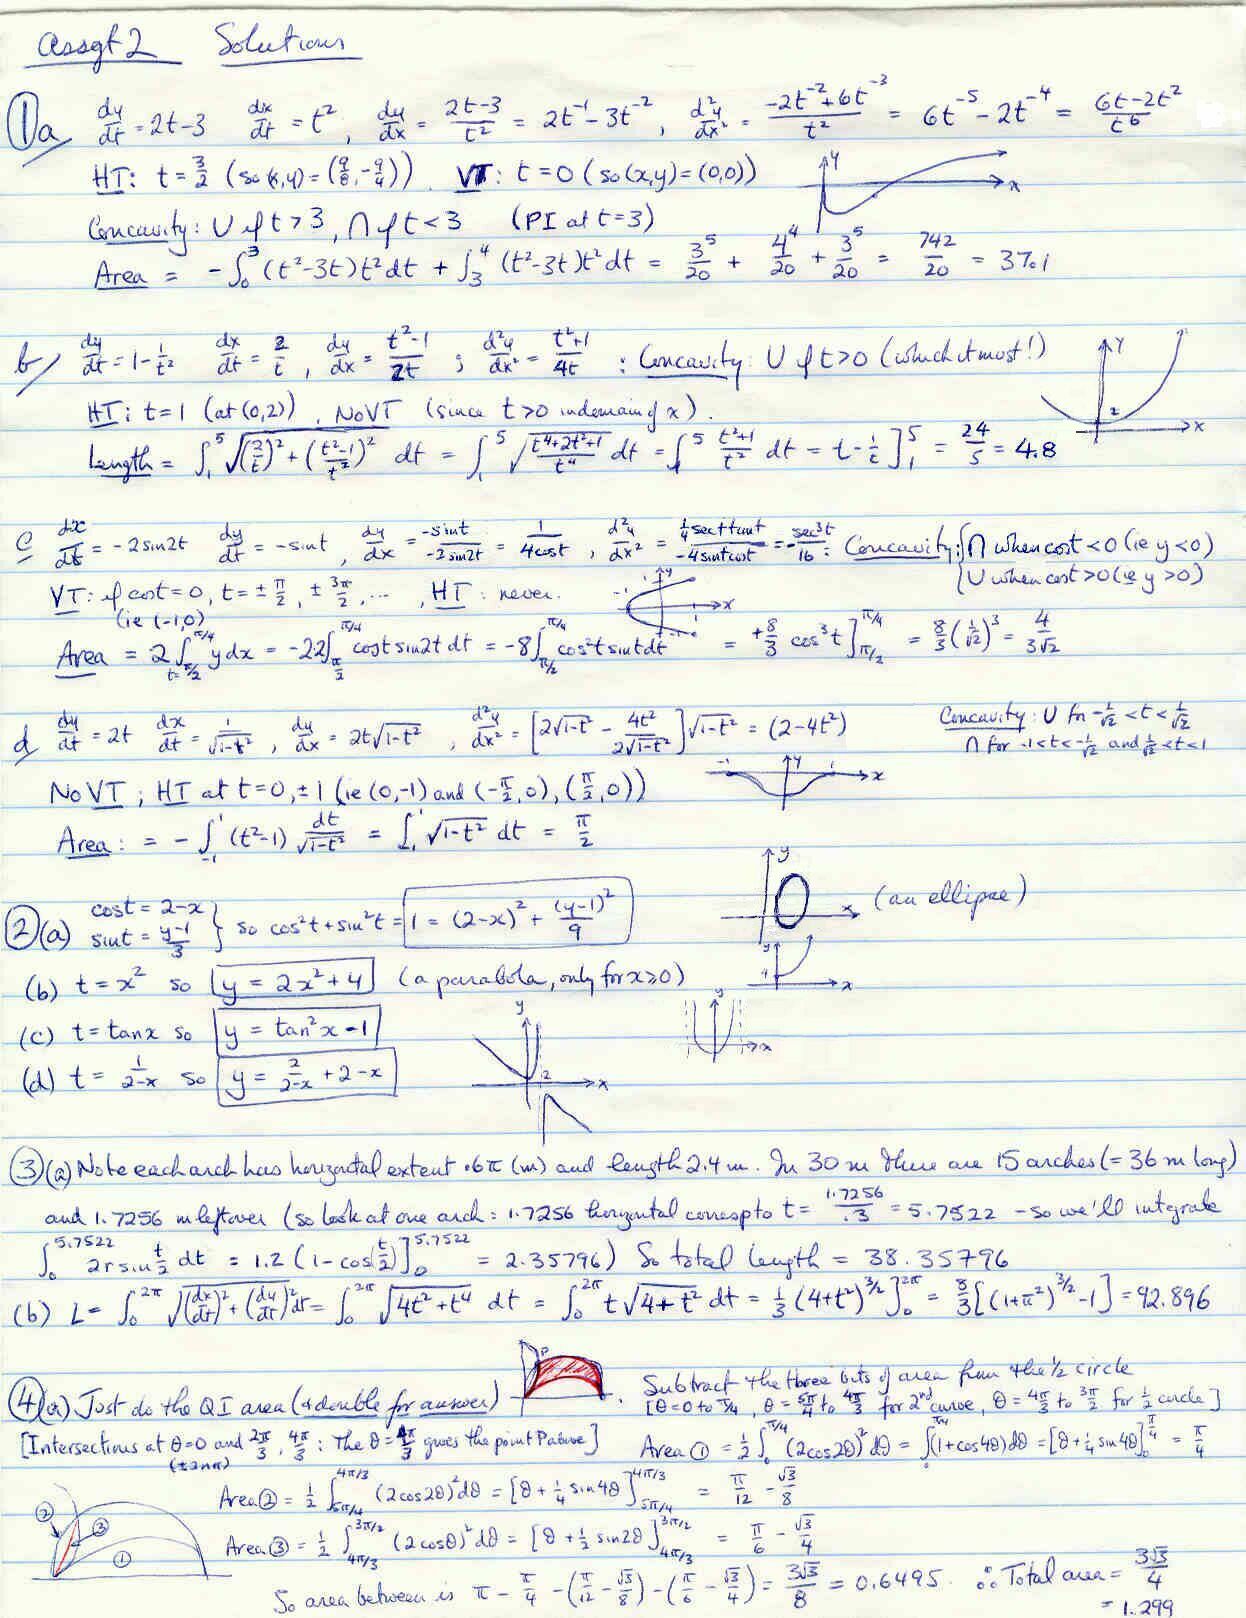 Assgt 2 Solutions
①a dy/dt = 2t-3 dx/dt = t², dy/dx = (2t-3)/t² = 2t⁻¹-3t⁻², d²y/dx² = (-2t⁻²+6t⁻³)/t² = 6t⁻⁵-2t⁻⁴ = (6t-2t²)/t⁶
HT: t = 3/2 (so (x,y) = (9/8, -9/4)) VT: t=0 (so (x,y) = (0,0)) y x
Concavity: ∪ if t>3, ∩ if t<3 (PI at t=3)
Area = -∫₀³ (t²-3t)t² dt + ∫₃⁴ (t²-3t)t² dt = 3⁵/20 + 4⁴/20 + 3⁵/20 = 742/20 = 37.1
b dy/dt = 1-1/t² dx/dt = 2/t, dy/dx = (t²-1)/2t ; d²y/dx² = (t²+1)/4t : Concavity: ∪ if t>0 (which it most!) y
HT: t=1 (at (0,2)), No VT (since t>0 in domain of x). 2 x
Length = ∫₁⁵ √((2/t)² + ((t²-1)/t²)²) dt = ∫₁⁵ √((t⁴+2t²+1)/t⁴) dt = ∫₁⁵ (t²+1)/t² dt = t-1/t]₁⁵ = 24/5 = 4.8
c dx/dt = -2sin2t dy/dt = -sint, dy/dx = -sint/-2sin2t = 1/4cost, d²y/dx² = ¼sect tant/-4sint cost = -sec³t/16 : Concavity: { ∩ when cost<0 (ie y<0)
{ ∪ when cost>0 (ie y>0)
VT: if cost=0, t = ±π/2, ±3π/2, ..., HT: never. -1 y 1 x
(ie (-1,0)
Area = 2∫_{t=π/2}^{π/4} y dx = -2·2∫_{π/2}^{π/4} cost sin2t dt = -8∫_{π/2}^{π/4} cos²t sint dt = +8/3 cos³t]_{π/2}^{π/4} = 8/3 (1/√2)³ = 4/3√2
d dy/dt = 2t dx/dt = 1/√(1-t²), dy/dx = 2t√(1-t²), d²y/dx² = [2√(1-t²) - 4t²/2√(1-t²)]√(1-t²) = (2-4t²) Concavity: ∪ for -1/√2<t<1/√2
∩ for -1<t<-1/√2 and 1/√2<t<1
No VT; HT at t=0, ±1 (ie (0,-1) and (-π/2,0), (π/2,0)) -1 y 1 x
Area: = -∫₋₁¹ (t²-1) dt/√(1-t²) = ∫₋₁¹ √(1-t²) dt = π/2
②(a) cost = 2-x
sint = (y-1)/3 } so cos²t+sin²t = 1 = (2-x)² + (y-1)²/9 y x (an ellipse)
(b) t = x² so y = 2x²+4 (a parabola, only for x≥0) x
(c) t = tanx so y = tan²x-1 y x
(d) t = 1/(2-x) so y = 2/(2-x) + 2-x y 2 x
③(a) Note each arch has horizontal extent .6π (m) and length 2.4m. In 30m there are 15 arches (=36m long)
and 1.7256 m leftover (so look at one arch: 1.7256 horizontal corresp to t = 1.7256/.3 = 5.7522 - so we'll integrate
∫₀^5.7522 2r sin t/2 dt = 1.2(1-cos(t/2)]₀^5.7522 = 2.35796) So total length = 38.35796
(b) L = ∫₀^2π √((dx/dt)²+(dy/dt)²) dt = ∫₀^2π √(4t²+t⁴) dt = ∫₀^2π t√(4+t²) dt = ⅓(4+t²)^3/2]₀^2π = 8/3[(1+π²)^3/2-1] = 92.896
④(a) Just do the QI area (& double for answer) P . Subtract the three bits of area from the ½ circle
[θ=0 to π/4, θ = 5π/4 to 4π/3 for 2nd curve, θ = 4π/3 to 3π/2 for ½ circle]
[Intersections at θ=0 and 2π/3, 4π/3 : The θ=4π/3 gives the point P above] Area ① = ½∫₀^π/4 (2cos2θ)²dθ = ∫₀^π/4 (1+cos4θ)dθ = [θ+¼sin4θ]₀^π/4 = π/4
(±2nπ)
Area ② = ½∫_{5π/4}^{4π/3} (2cos2θ)²dθ = [θ+¼sin4θ]_{5π/4}^{4π/3} = π/12 - √3/8
② ③ ①
Area ③ = ½∫_{4π/3}^{3π/2} (2cosθ)²dθ = [θ+½sin2θ]_{4π/3}^{3π/2} = π/6 - √3/4
So area between is π - π/4 - (π/12 - √3/8) - (π/6 - √3/4) = 3√3/8 = 0.6495. ∴ Total area = 3√3/4
= 1.299